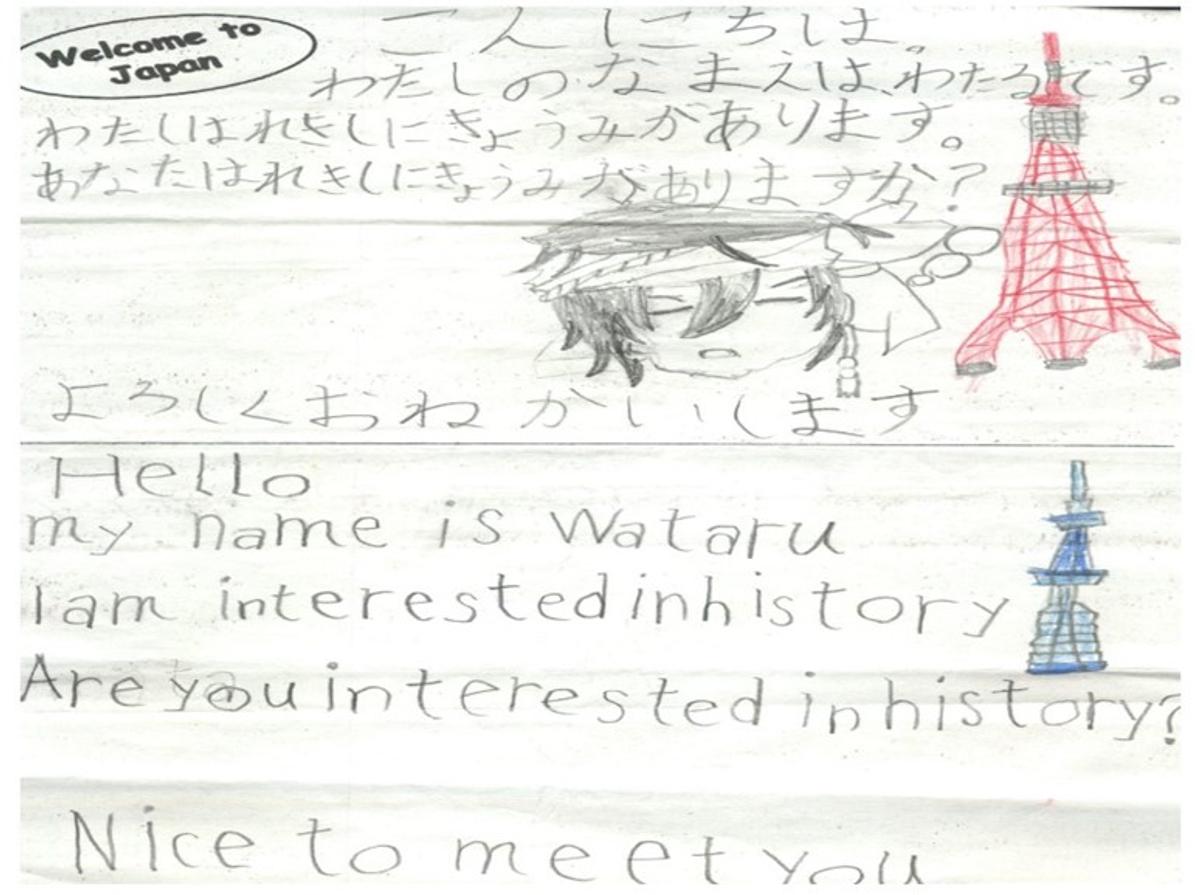 Welcome to
Japan
こんにちは。
わたしのなまえは、わたるです。
わたしはれきしにきょうみがあります。
あなたはれきしにきょうみがありますか?
よろしくおねがいします
Hello
my name is Wataru
I am interested in history
Are you interested in history?
Nice to meet you